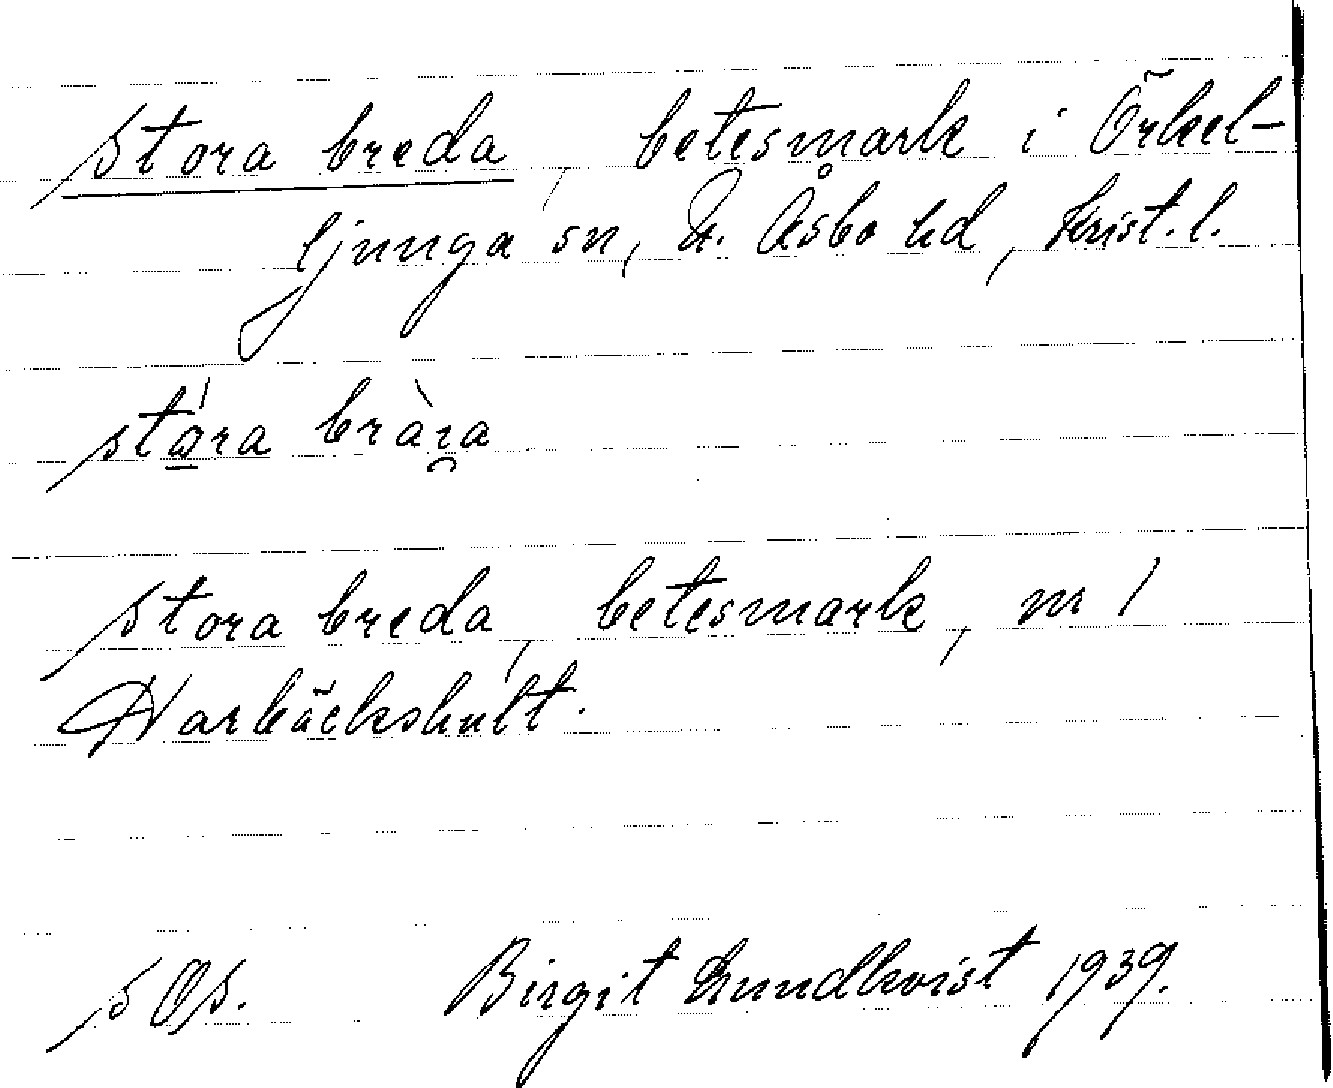 Stora breda, betesmark i Örkel-
ljunga sn, N. Åsbo hd, Krist. l.
stára bràra
Stora breda, betesmark, nr 1
Harbäckshult.
Birgit Lundkvist 1939.